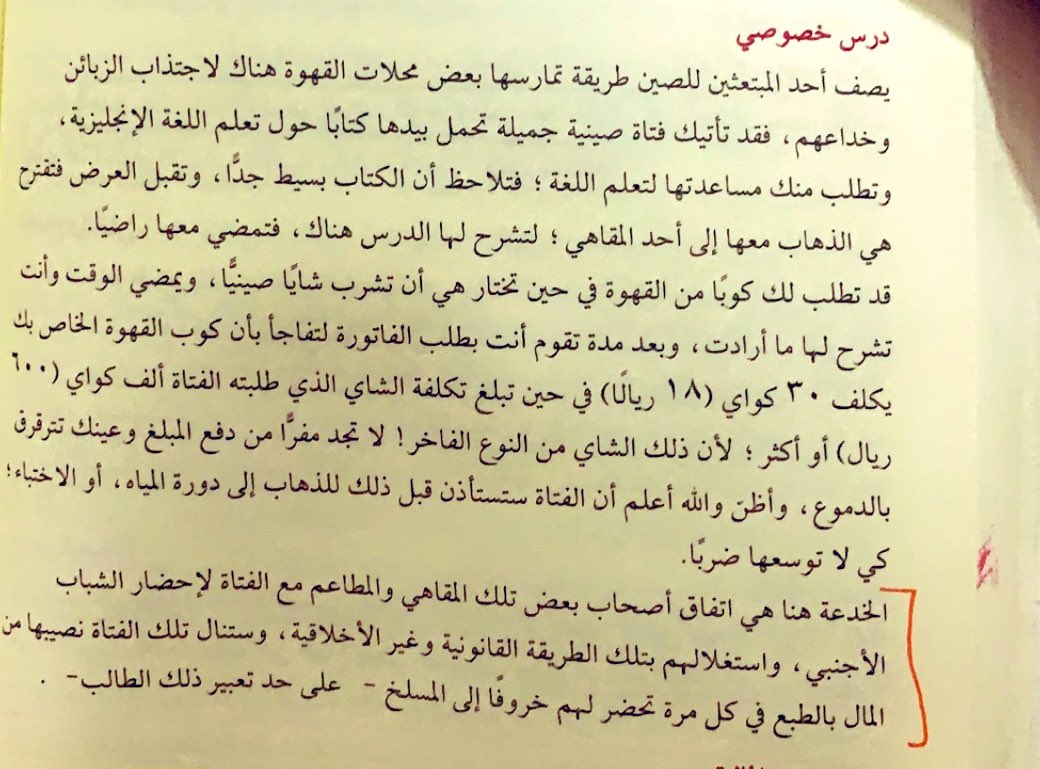 درس خصوصي
يصف أحد المبتعثين للصين طريقة تمارسها بعض محلات القهوة هناك لاجتذاب الزبائن
وخداعهم، فقد تأتيك فتاة صينية جميلة تحمل بيدها كتابًا حول تعلم اللغة الإنجليزية،
وتطلب منك مساعدتها لتعلم اللغة؛ فتلاحظ أن الكتاب بسيط جدًّا، وتقبل العرض فتقترح
هي الذهاب معها إلى أحد المقاهي؛ لتشرح لها الدرس هناك، فتمضي معها راضيًا.
قد تطلب لك كوبًا من القهوة في حين تختار هي أن تشرب شايًا صينيًّا، ويمضي الوقت وأنت
تشرح لها ما أرادت، وبعد مدة تقوم أنت بطلب الفاتورة لتفاجأ بأن كوب القهوة الخاص بك
يكلف ٣٠ كواي (١٨ ريالًا) في حين تبلغ تكلفة الشاي الذي طلبته الفتاة ألف كواي (٦٠٠
ريال) أو أكثر؛ لأن ذلك الشاي من النوع الفاخر! لا تجد مفرًّا من دفع المبلغ وعينك تترقرق
بالدموع، وأظنّ والله أعلم أن الفتاة ستستأذن قبل ذلك للذهاب إلى دورة المياه، أو الاختباء؛
كي لا توسعها ضربًا.
الخدعة هنا هي اتفاق أصحاب بعض تلك المقاهي والمطاعم مع الفتاة لإحضار الشباب
الأجنبي، واستغلالهم بتلك الطريقة القانونية وغير الأخلاقية، وستنال تلك الفتاة نصيبها من
المال بالطبع في كل مرة تحضر لهم خروفًا إلى المسلخ - على حد تعبير ذلك الطالب- .